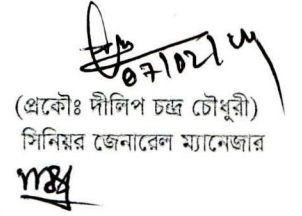 07/02/
(প্রকৌঃ দীলিপ চন্দ্র চৌধুরী)
সিনিয়র জেনারেল ম্যানেজার